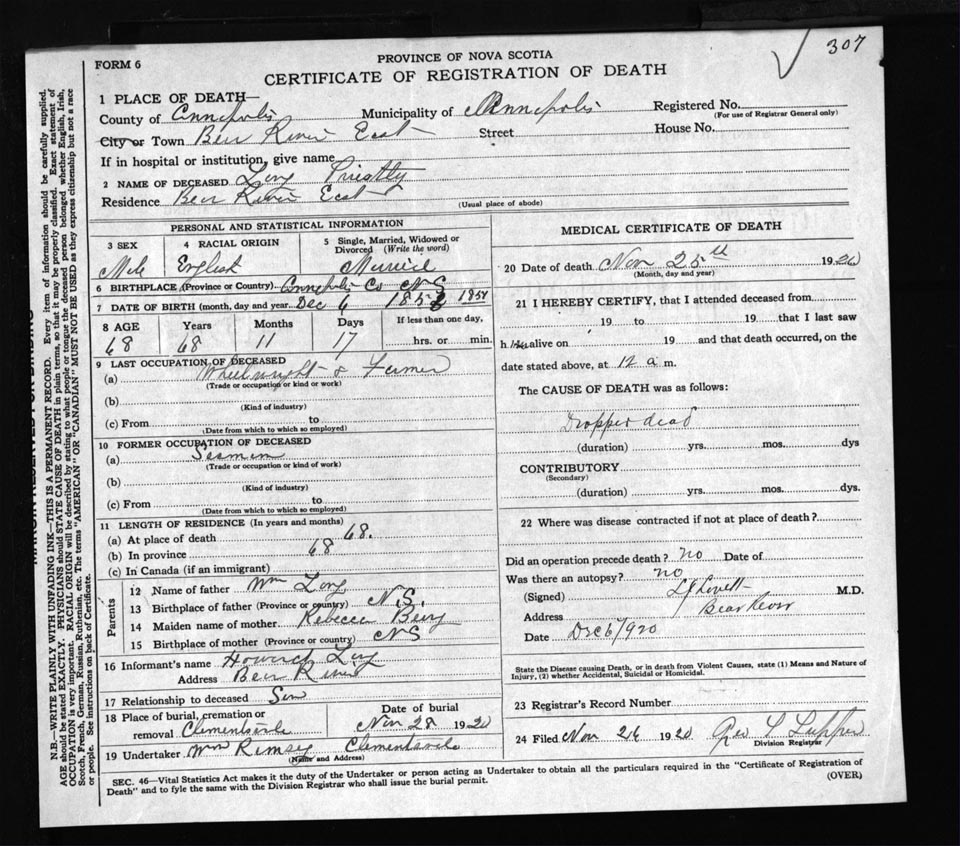 307
FORM 6
PROVINCE OF NOVA SCOTIA
CERTIFICATE OF REGISTRATION OF DEATH
1 PLACE OF DEATH—
County of Annapolis Municipality of Annapolis Registered No.
(For use of Registrar General only)
City or Town Bear River East Street House No.
If in hospital or institution, give name
2 NAME OF DECEASED Long Priestly
Residence Bear River East
(Usual place of abode)
PERSONAL AND STATISTICAL INFORMATION
3 SEX 4 RACIAL ORIGIN 5 Single, Married, Widowed or Divorced (Write the word)
Male English Married
6 BIRTHPLACE (Province or Country) Annapolis Co NS
7 DATE OF BIRTH (month, day and year) Dec 6 1851
8 AGE Years Months Days If less than one day,
68 68 11 17 hrs. or min.
9 LAST OCCUPATION OF DECEASED
(a) Wheelwright & Farmer
(Trade or occupation or kind or work)
(b)
(Kind of industry)
(c) From to
(Date from which to which so employed)
10 FORMER OCCUPATION OF DECEASED
(a) Seaman
(Trade or occupation or kind of work)
(b)
(Kind of industry)
(c) From to
(Date from which to which so employed)
11 LENGTH OF RESIDENCE (In years and months)
(a) At place of death 68.
(b) In province 68
(c) In Canada (if an immigrant)
Parents
12 Name of father Wm Long
13 Birthplace of father (Province or country) N.S.
14 Maiden name of mother Rebecca
15 Birthplace of mother (Province or country) NS
16 Informant's name Long
Address Bear River
17 Relationship to deceased Son
18 Place of burial, cremation or Date of burial
removal Clementsvale Nov 28 1920
19 Undertaker Wm Ramsey Clementsvale
(Name and Address)
MEDICAL CERTIFICATE OF DEATH
20 Date of death Nov 25th 1920
(Month, day and year)
21 I HEREBY CERTIFY, that I attended deceased from
19 to 19 that I last saw
h im alive on 19 and that death occurred, on the
date stated above, at 12 a m.
The CAUSE OF DEATH was as follows:
Dropped dead
(duration) yrs. mos. dys
CONTRIBUTORY
(Secondary)
(duration) yrs. mos. dys.
22 Where was disease contracted if not at place of death?
Did an operation precede death? no Date of
Was there an autopsy? no
(Signed) Lovett M.D.
Address Bear River
Date Dec 6/920
State the Disease causing Death, or in death from Violent Causes, state (1) Means and Nature of
Injury, (2) whether Accidental, Suicidal or Homicidal.
23 Registrar's Record Number
24 Filed Nov 26 1920 Geo
Division Registrar
SEC. 46—Vital Statistics Act makes it the duty of the Undertaker or person acting as Undertaker to obtain all the particulars required in the "Certificate of Registration of
Death" and to fyle the same with the Division Registrar who shall issue the burial permit.
(OVER)
MARGIN RESERVED FOR BINDING
N.B.—WRITE PLAINLY WITH UNFADING INK—THIS IS A PERMANENT RECORD. Every item of information should be carefully supplied.
AGE should be stated EXACTLY. PHYSICIANS should STATE CAUSE OF DEATH in plain terms, so that it may be properly classified. Exact statement of
OCCUPATION is very important. RACIAL ORIGIN will be described by stating to what people or tongue the deceased person belonged whether English, Irish,
Scotch, French, German, Russian, Ruthenian, etc. The terms "AMERICAN" OR "CANADIAN" MUST NOT BE USED as they express citizenship but not a race
or people. See instructions on back of Certificate.